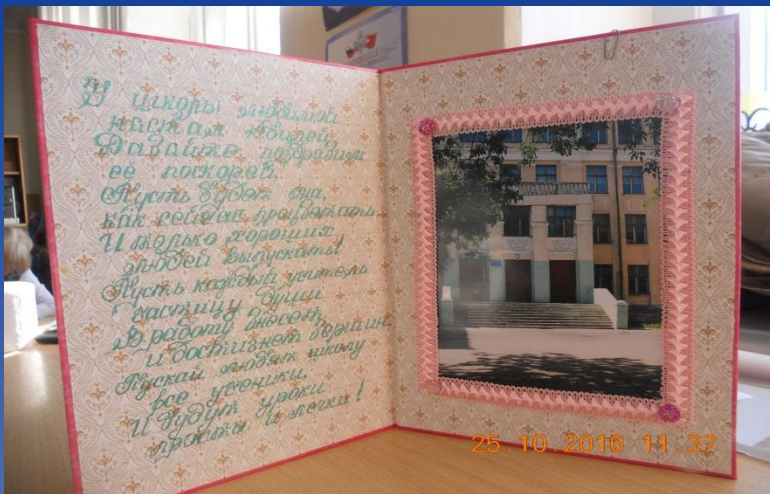 У школы любимой
настал юбилей.
Давайте поздравим
её поскорей.
Пусть будет она,
как сейчас процветать
И только хороших
людей выпускать!
Пусть каждый учитель
частицу души
В работу внесёт
и достигнет вершин.
Пускай любят школу
все ученики.
И будут уроки
просты и легки!
25.10.2016 11:37